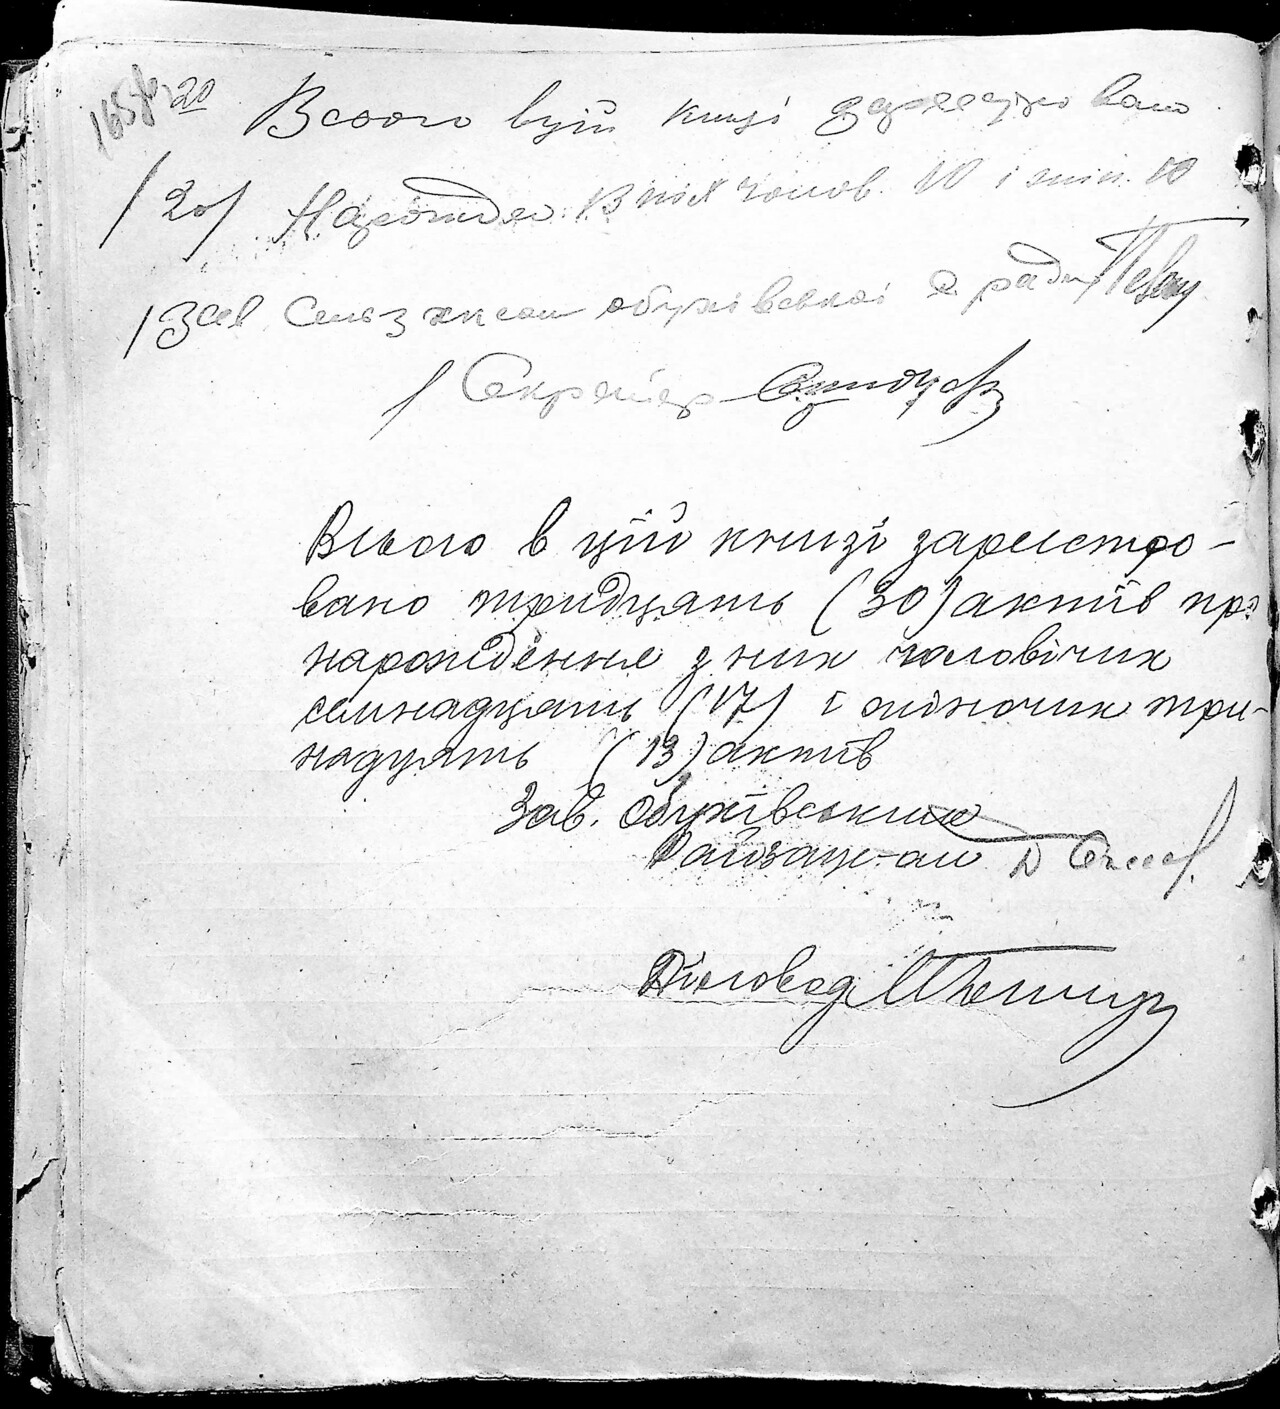 20 Всього в цій книзі зареєстровано
/20/ Народжен. В них чолов. 10 і жін. 10
/Зав. Сільзагсом обухівської с. ради
/Секретар
Всього в ційі книзі зареєстро-
вано тридцять (30) актів про
народження з них чоловічих
семнадцять (17) і жіночих три-
надцять (13) актів
Зав. Обухівським
Райзагс-ом
Діловод